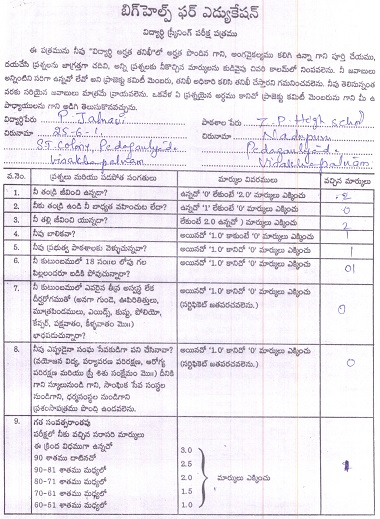 బిగ్‌హెల్ప్ ఫర్ ఎడ్యుకేషన్
విద్యార్థి స్క్రీనింగ్ పరీక్ష పత్రము
ఈ పత్రమును నీవు "విద్యార్థి అర్హత తనిఖీ"లో అర్హత పొందిన గాని, అంగవైకల్యము కలిగి ఉన్నా గాని పూర్తి చేయుము,
దయచేసి ప్రశ్నలను జాగ్రత్తగా చదివి, అన్ని ప్రశ్నలకు నీకొచ్చిన మార్కులను కుడివైపు చివరి కాలమ్‌లో నింపవలెను. నీ జవాబులు
అన్నింటిని సరిగా ఉన్నవో లేవో అని ప్రాజెక్టు కమిటీ మెంబరు, తనిఖీ అధికారి కలిసి తనిఖీ చేస్తారని గమనించవలెను. నీవు తెలిసున్నంత
వరకు సరియైన జవాబులు మాత్రమే వ్రాయవలెను. ఒకవేళ ఏ ప్రశ్నయైన అర్థము కానిచో ప్రాజెక్టు కమిటీ మెంబరును గాని మీ ఉ
పాధ్యాయులను గాని అడిగి తెలుసుకొనవచ్చును.
విద్యార్థిపేరు P. Jahnavi పాఠశాల పేరు Z.P. High school
చిరునామా 25-6-1, చిరునామా Nadupuru
ST. Colony, Pedagantyada, Pedagantyada,
Visakhapatnam Visakhapatnam
వ.నెం. ప్రశ్నలు మరియు సదపోత సంగతులు మార్కుల వివరములు వచ్చిన మార్కులు
1. నీ తండ్రి జీవించి ఉన్నదా? ఉన్నచో '0' లేకుంటే '2.0' మార్కులు ఎక్కించు 2
2. నీకు తండ్రి ఉండి నీ బాధ్యత వహించుట లేదా? ఉన్నచో '1' లేకుంటే '0' మార్కులు ఎక్కించు 0
3. నీ తల్లి జీవించి యున్నదా? లేకుంటే 2.0 ఉన్నచో 0 మార్కులు ఎక్కించు 2
4. నీవు బాలికవా? అయినచో '1.0' కాకుంటే '0' మార్కులు ఎక్కించు 1
5. నీవు ప్రభుత్వ పాఠశాలకు వెళ్ళుచున్నావా? అయినచో '1.0' కానిచో '0' మార్కులు ఎక్కించు 1
6. నీ కుటుంబములో 18 సం॥ల లోపు గల అయినచో '1.0' కానిచో '0' మార్కులు ఎక్కించు 01
పిల్లలందరూ బడికి పోవుచున్నారా?
7. నీ కుటుంబములో ఎవరైన తీవ్ర అస్వస్థ లేక అయినచో '1.0' కానిచో '0' మార్కులు ఎక్కించు 0
దీర్ఘరోగముతో (అనగా గుండె, ఊపిరితిత్తులు, (సర్టిఫికెట్ జతపరచవలెను.)
మూత్రపిండములు, ఎయిడ్స్, కుష్ఠు, పోలియో,
కేన్సర్, పక్షవాతం, కీళ్ళవాతం మొ॥)
బాధపడుచున్నారా?
8. నీవు ఎప్పుడైనా సంఘ సేవకుడిగా పని చేసినావా? అయినచో '1.0' కానిచో '0' మార్కులు ఎక్కించు 0
(వయోజన విద్య, పర్యావరణ పరిరక్షణ, ఆరోగ్య (సర్టిఫికెట్ జతపరచవలెను.)
పరిరక్షణ మరియు స్త్రీ శిశు సంక్షేమం మొ॥) దీనికి
గాని స్కూలునుండి గాని, సాంఘిక సేవ సంస్థల
నుండిగాని, ధర్మసంస్థల నుండిగాని
ప్రశంసాపత్రము పొంది ఉండవలెను.
9. గత సంవత్సరాంతపు
పరీక్షలో నీకు వచ్చిన సరాసరి మార్కులు
ఈ క్రింద విధముగా ఉన్నచో
90 శాతము దాటినచో 3.0
90-81 శాతము మధ్యలో 2.5
80-71 శాతము మధ్యలో 2.0 మార్కులు ఎక్కించు 1
70-61 శాతము మధ్యలో 1.5
60-51 శాతము మధ్యలో 1.0